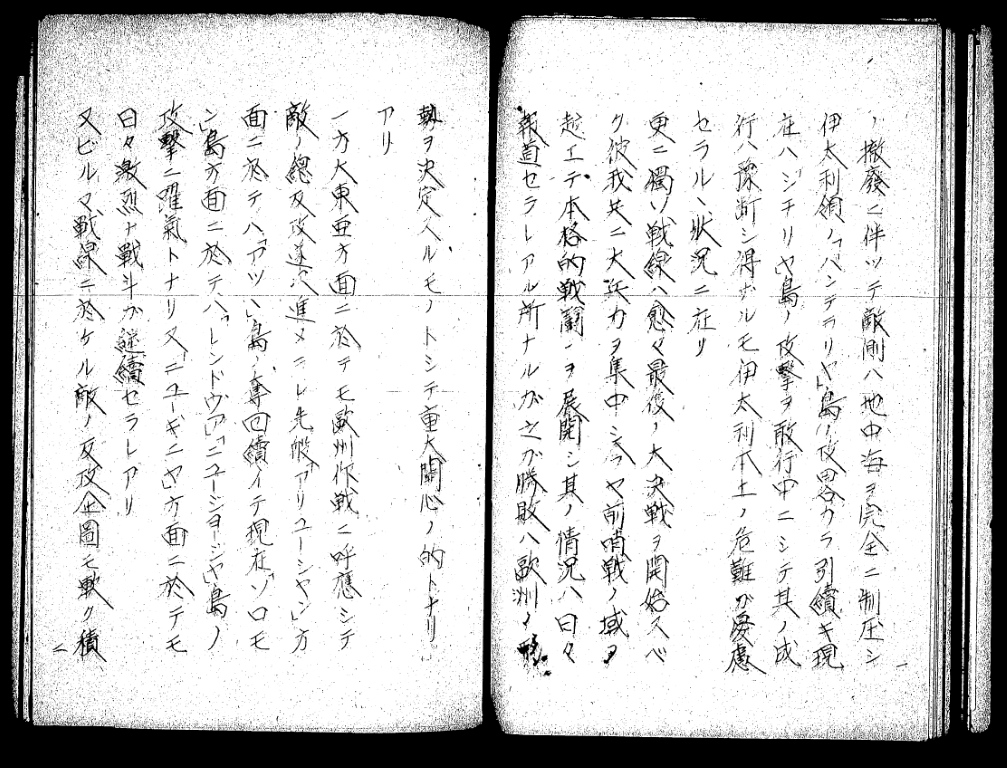 ノ撤發ニ伴ツテ敵側ハ地中海ヲ完全ニ制圧シ
伊太利領ノ「パンテラリヤ」島ノ攻畧カラ引續キ現
在ハ「シチリヤ」島ノ攻撃ヲ敢行中ニシテ其ノ成
行ハ豫断シ得ザルモ伊太利本土ノ危難ガ憂慮
セラルヽ状況ニ在リ
更ニ獨ソ戦線ハ愈々最後ノ大決戦ヲ開始スベ
ク彼我共ニ大兵力ヲ集中シ今ヤ前哨戦ノ域ヲ
起エテ本格的戦闘ヲ展開シ其ノ情況ハ日々
報道セラレアル所ナルガ之ガ勝敗ハ欧洲ノ形
一
勢ヲ決定スルモノトシテ重大関心ノ的トナリ
アリ
一方大東亜方面ニ於テモ欧州作戦ニ呼應シテ
敵ノ總反攻逐次進メラレ先般「アリューシャン」方
面ニ於テハ「アッツ」島ノ奪回續イテ現在「ソロモ
ン」島方面ニ於テハ「レンドヴア」「ニュージョージヤ」島ノ
攻撃ニ躍氣トナリ又「ニューギニヤ」方面ニ於テモ
日々激烈ナ戦斗ガ継續セラレアリ
又ビルマ戦線ニ於ケル敵ノ反攻企圖モ軟ク積
二